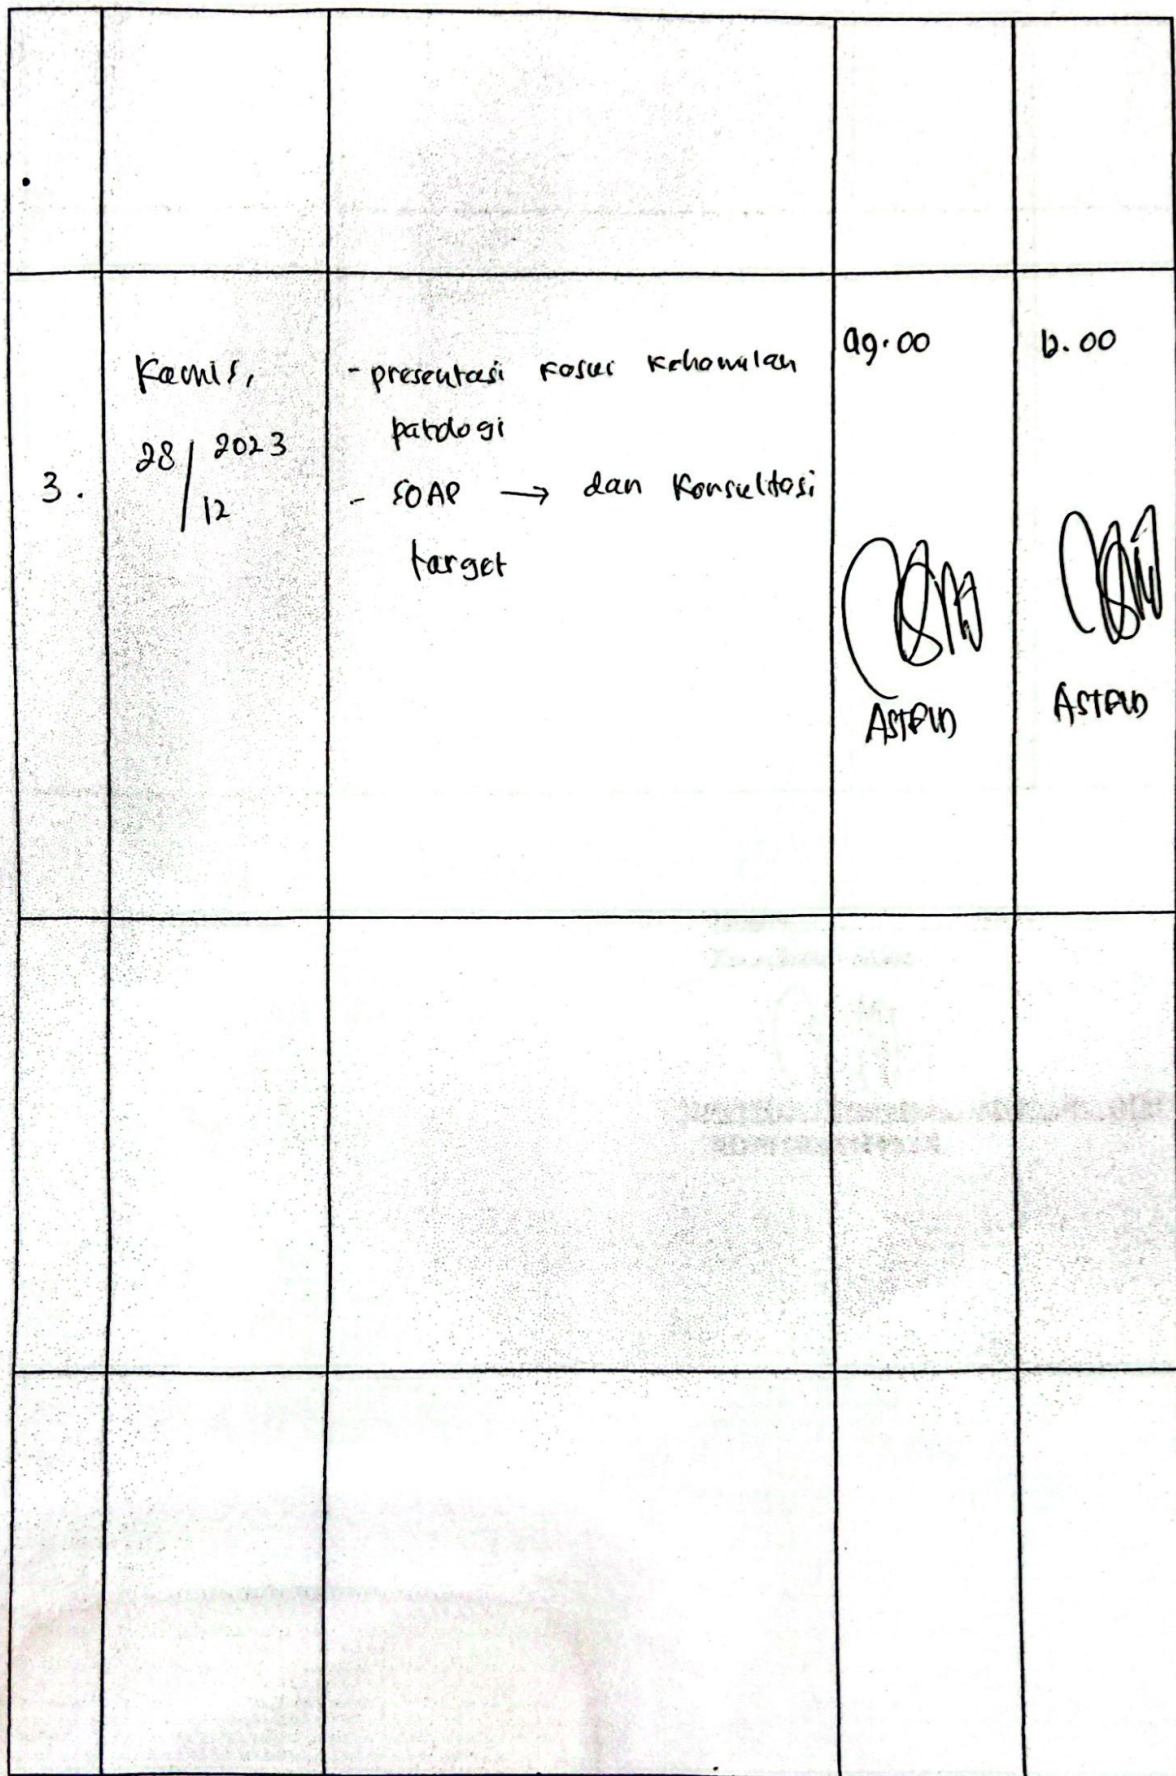 Kamis,
28/12 2023
3.
- presentasi kasus kehamilan
patologi
- SOAP → dan Konsultasi
target
09.00
ASTRID
ASTRID